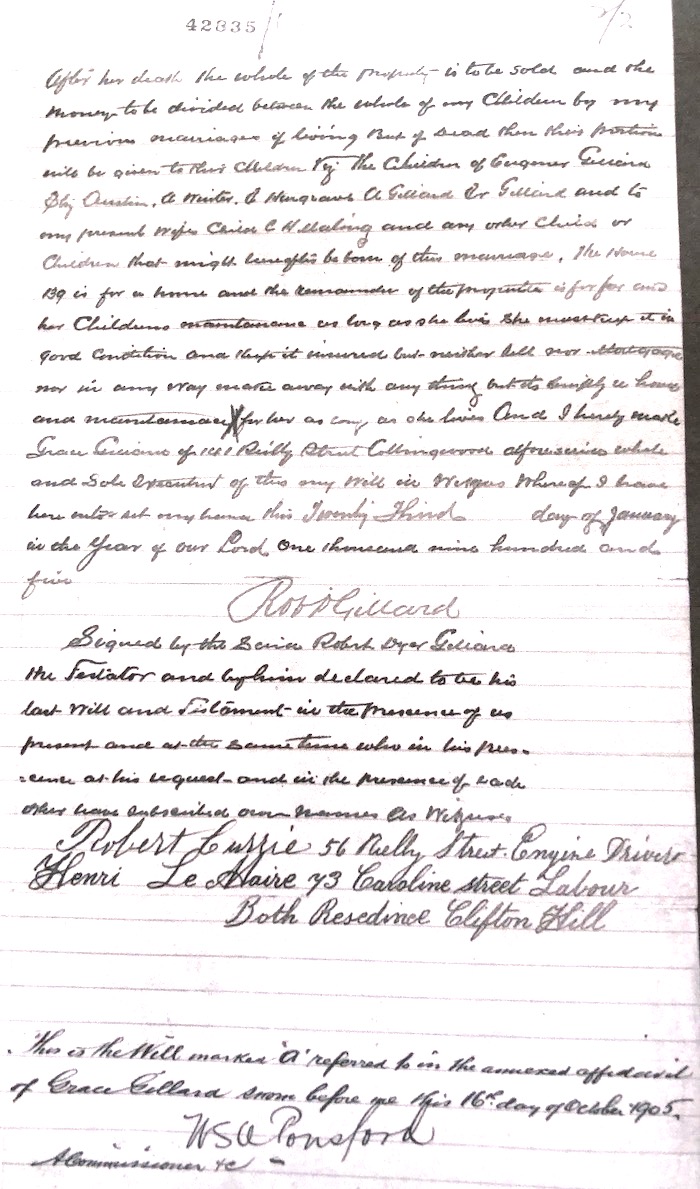 42835
2/2
After her death the whole of the property is to be sold and the
money to be divided between the whole of my Children by my
previous marriages if living But if Dead then their portion
will be given to their Children Viz The Children of Eugener Gillard
Eliz Austin, A Winter, E Hargrave A Gillard Gillard and to
my present Wifes Child C H Maling and any other Child or
Children that might hereafter be born of this marriage, The House
139 is for a home and the remainder of the properties is for her and
her Childrens maintanance as long as she lives she must keep it in
good Condition and keep it insured but neither sell nor Mortgage
nor in any way make away with any thing but its simply a home
and maintanance X for her as long as she lives And I hereby make
Grace Gillard of Reilly Street Collingwood aforesaid whole
and Sole of this my Will in Witness Whereof I have
here unto set my hand this Twenty Third day of January
in the Year of our Lord One thousand nine hundred and
five
Robt D Gillard
Signed by the Said Robert Dyer Gillard
the Testator and by him declared to be his
last Will and Testament in the presence of us
present and at the same time who in his pres-
-cence at his request and in the presence of each
other have subscribed our names as Witness
Robert Currie 56 Reilly Street. Engine Driver
Henri Le Maire 73 Caroline street Labour
Both Resedince Clifton Hill
This is the Will marked 'A' referred to in the annexed affidavit
of Grace Gillard sworn before me this 16th day of October 1905.
Ponsford
A Commissioner &c